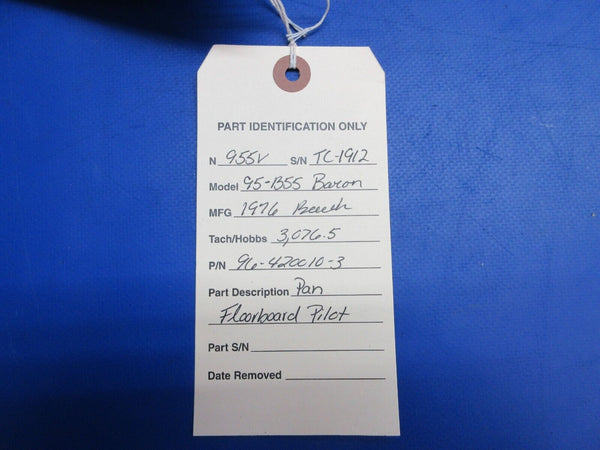 PART IDENTIFICATION ONLY
N 955V S/N TC-1912
Model 95-B55 Baron
MFG 1976 Beech
Tach/Hobbs 3,076.5
P/N 96-420010-3
Part Description Pan
Floorboard Pilot
Part S/N
Date Removed